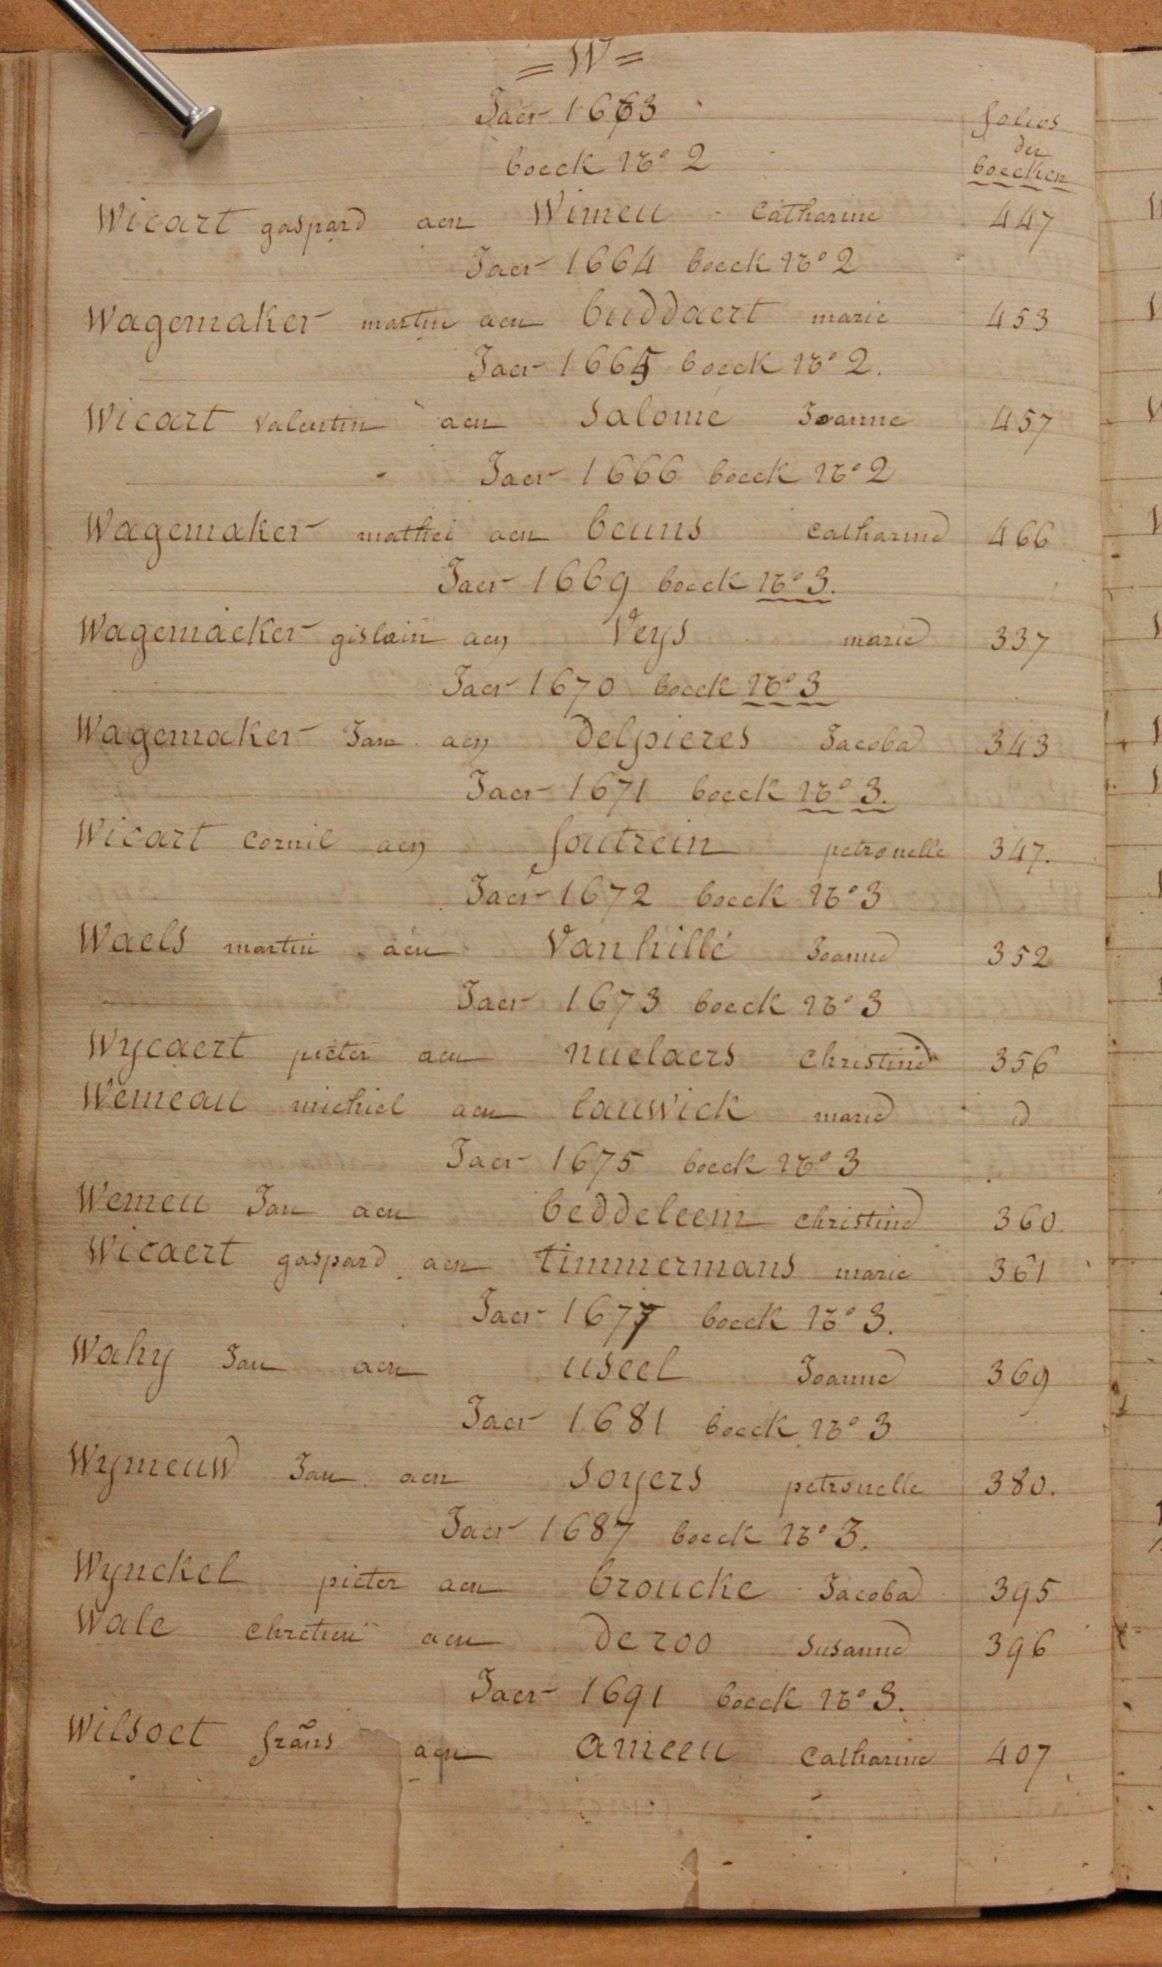 = W =
Jaer 1663
folios
boeck No 2
der
boecken
Wicart gaspard aen Wimeu Catharine 447
Jaer 1664 boeck No 2
Wagemaker martin aen buddaert marie 453
Jaer 1665 boeck No 2.
Wicart valentin aen Salome Joanne 457
Jaer 1666 boeck No 2
Wagemaker mathei aen beuns Catharine 466
Jaer 1669 boeck No 3.
Wagemacker gislain aen Veys marie 337
Jaer 1670 boeck No 3
Wagemaker Jan aen Delpieres Jacoba 343
Jaer 1671 boeck No 3.
Wicart Cornil aen foutrein petronelle 347.
Jaer 1672 boeck No 3
Waels martin aen Vanhille Joanne 352
Jaer 1673 boeck No 3
Wycaert pieter aen nuelaers Christine 356
Wemeau michiel aen lauwick marie d
Jaer 1675 boeck No 3
Wemeu Jan aen beddeleem Christine 360
Wicaert gaspard aen timmermans marie 361
Jaer 1677 boeck No 3.
Wahy Jan aen useel Joanne 369
Jaer 1681 boeck No 3
Wymeuw Jan aen Soyers petronelle 380.
Jaer 1687 boeck No 3.
Wynckel pieter aen broucke Jacoba 395
Wale Chretien aen Deroo Susanne 396
Jaer 1691 boeck No 3.
Wilsoet frans aen ameeu Catharine 407